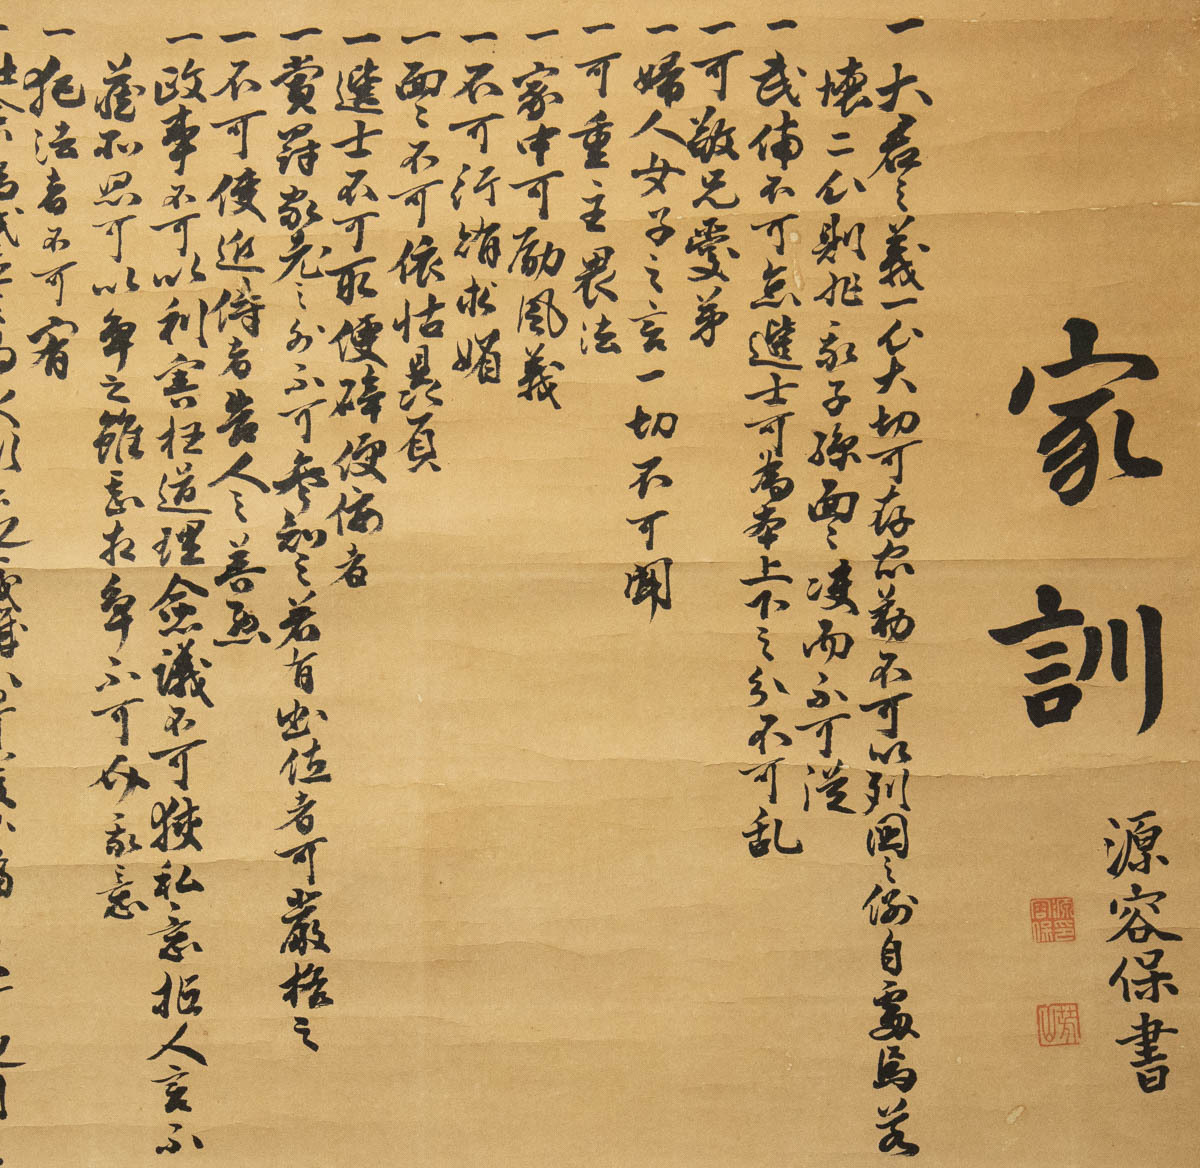 家訓
源容保書
源印容保
芳山
一大君之義一心大切可存忠勤不可以列國之例自處焉若
懐二心則非我子孫面々决而不可從
一武備不可怠選士可為本上下之分不可乱
一可敬兄愛弟
一婦人女子之言一切不可聞
一可重主畏法
一家中可励風義
一不可行賄求媚
一面々不可依怙贔負
一選士不可取便辟便佞者
一賞罸家老之外不可參知之若有出位者可嚴格之
一不可使近侍者告人之善悪
一政事不可以利害枉道理僉議不可挾私意拒人言不
蔵所思可以争之雖甚相争不可介我意
一犯法者不可宥